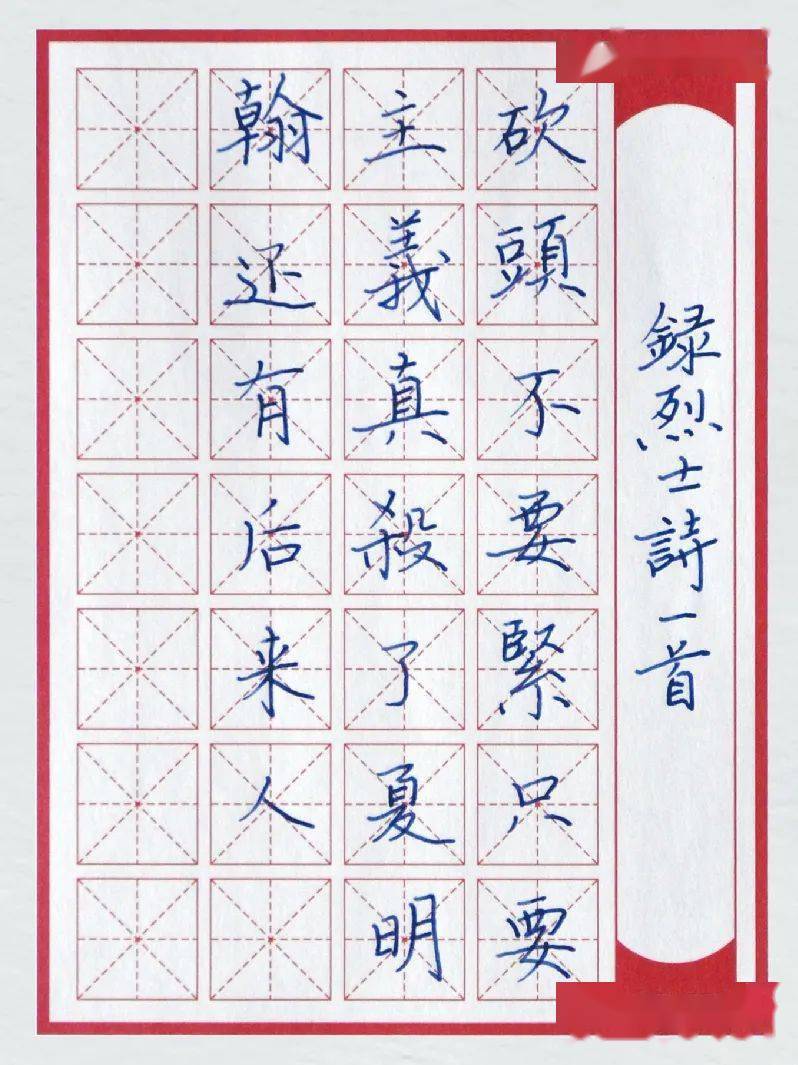 録烈士詩一首
砍頭不要緊只要
主義真殺了夏明
翰还有后来人